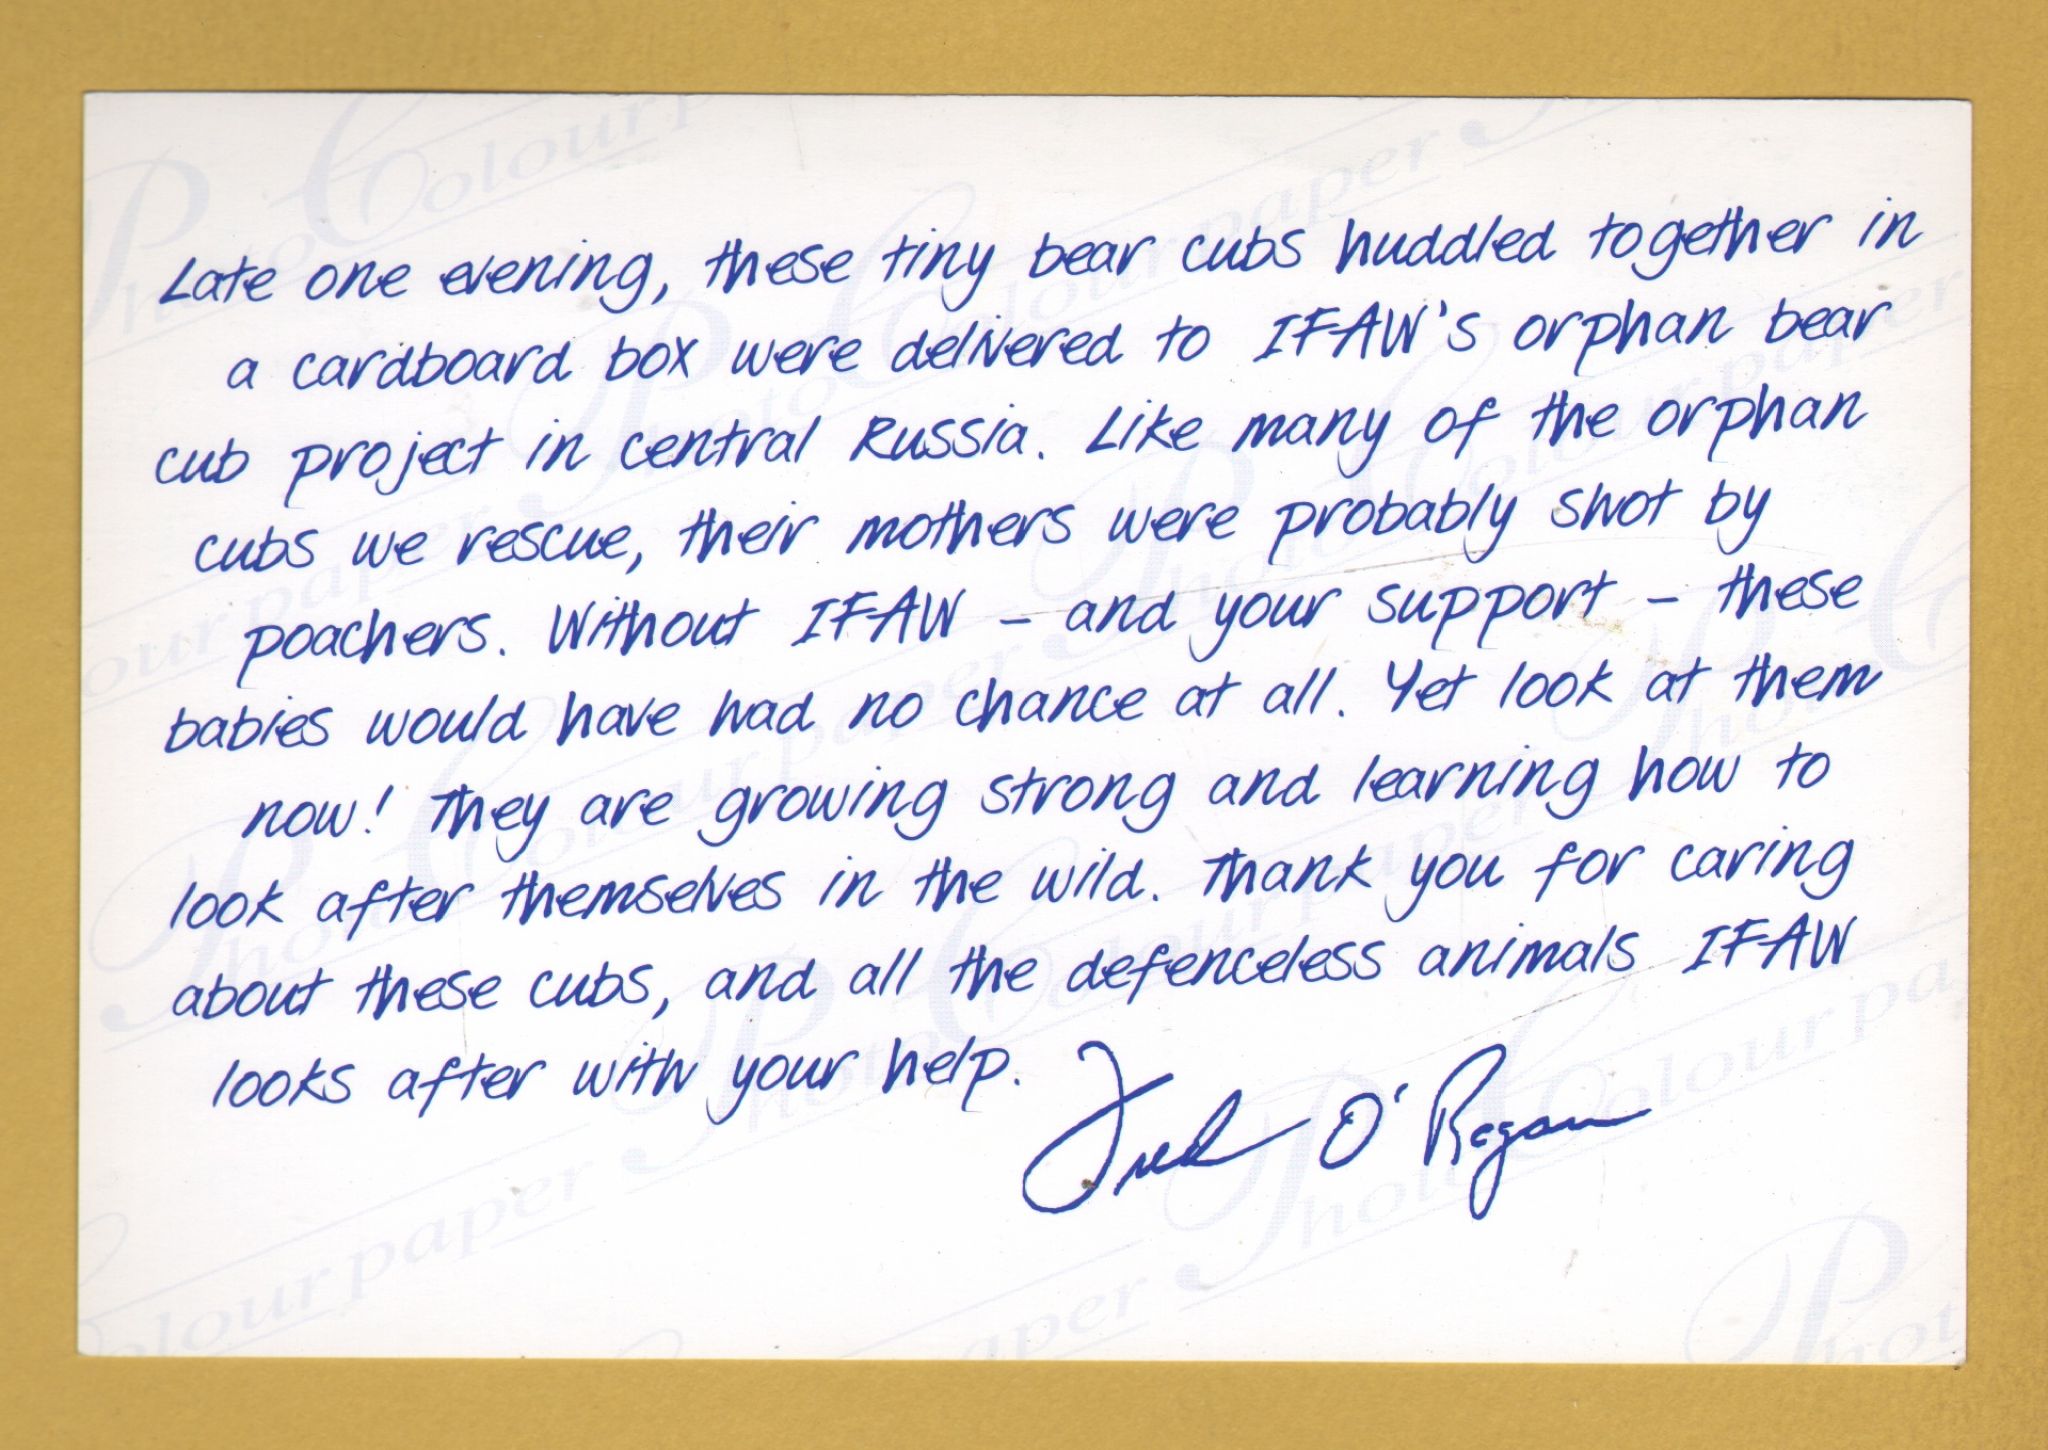 Late one evening, these tiny bear cubs huddled together in
a cardboard box were delivered to IFAW's orphan bear
cub project in central Russia. Like many of the orphan
cubs we rescue, their mothers were probably shot by
poachers. Without IFAW – and your support – these
babies would have had no chance at all. Yet look at them
now! They are growing strong and learning how to
look after themselves in the wild. Thank you for caring
about these cubs, and all the defenceless animals IFAW
looks after with your help.
Fred O'Regan